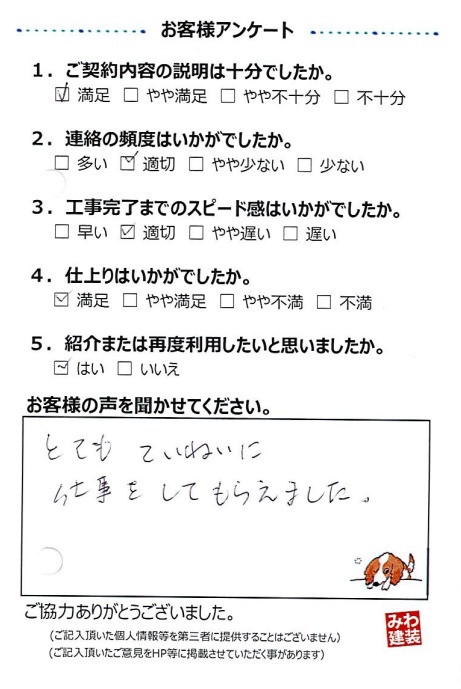 お客様アンケート
1．ご契約内容の説明は十分でしたか。
☑ 満足 □ やや満足 □ やや不十分 □ 不十分
2．連絡の頻度はいかがでしたか。
□ 多い ☑ 適切 □ やや少ない □ 少ない
3．工事完了までのスピード感はいかがでしたか。
□ 早い ☑ 適切 □ やや遅い □ 遅い
4．仕上りはいかがでしたか。
☑ 満足 □ やや満足 □ やや不満 □ 不満
5．紹介または再度利用したいと思いましたか。
☑ はい □ いいえ
お客様の声を聞かせてください。
とても ていねいに
仕事をしてもらえました。
ご協力ありがとうございました。
(ご記入頂いた個人情報等を第三者に提供することはございません)
(ご記入頂いたご意見をHP等に掲載させていただく事があります)
みわ
建装